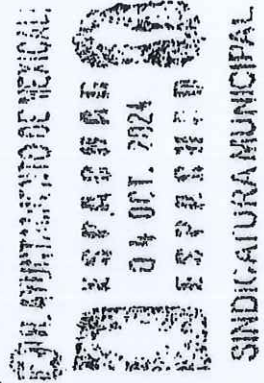 AYUNTAMIENTO DE MEXICALI
DESPACHADO
04 OCT. 2024
DESPACHADO
SINDICATURA MUNICIPAL